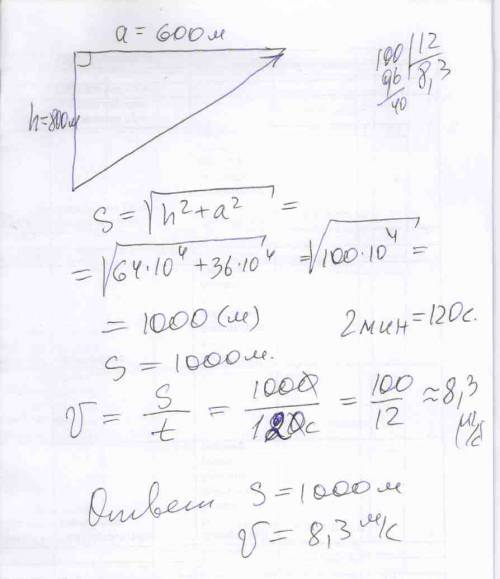 a = 600м
h=800м
100 | 12
96 8,3
40
S = √h²+a² =
= √64·10⁴ + 36·10⁴ = √100·10⁴ =
= 1000 (м)
2 мин = 120с.
S = 1000м.
V = S/t = 1000/120с = 100/12 ≈ 8,3 м/с
Ответ S = 1000м
V = 8,3 м/с